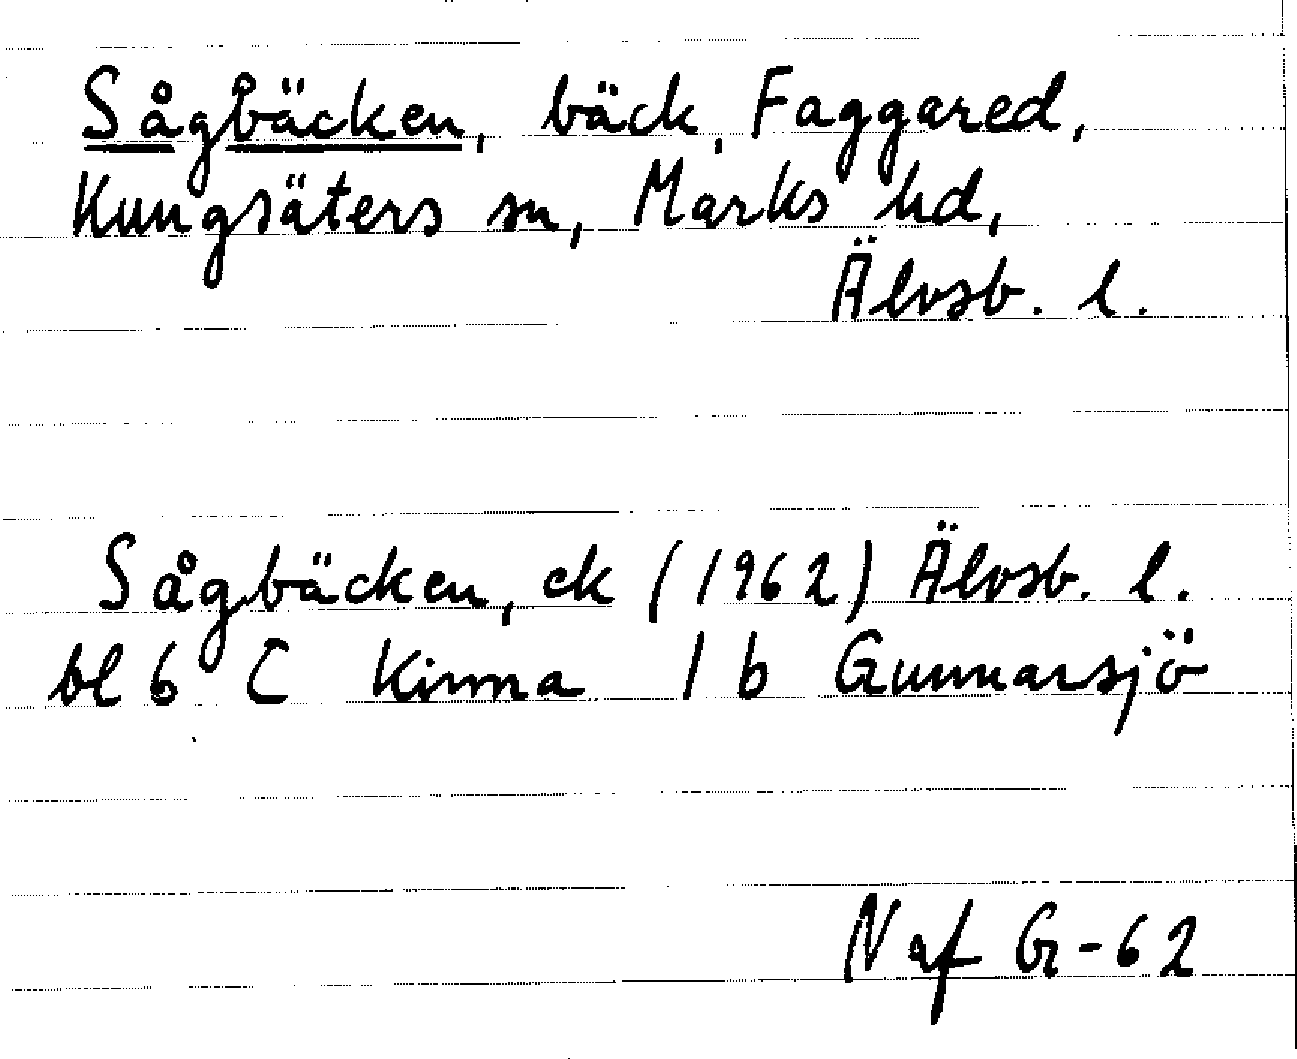 Sågbäcken, bäck, Faggared,
Kungsäters sn, Marks hd,
Älvsb. l.
Sågbäcken, ek (1962) Älvsb. l.
bl 6 C Kinna 1 b Gunnarsjö
Naf Gr-62